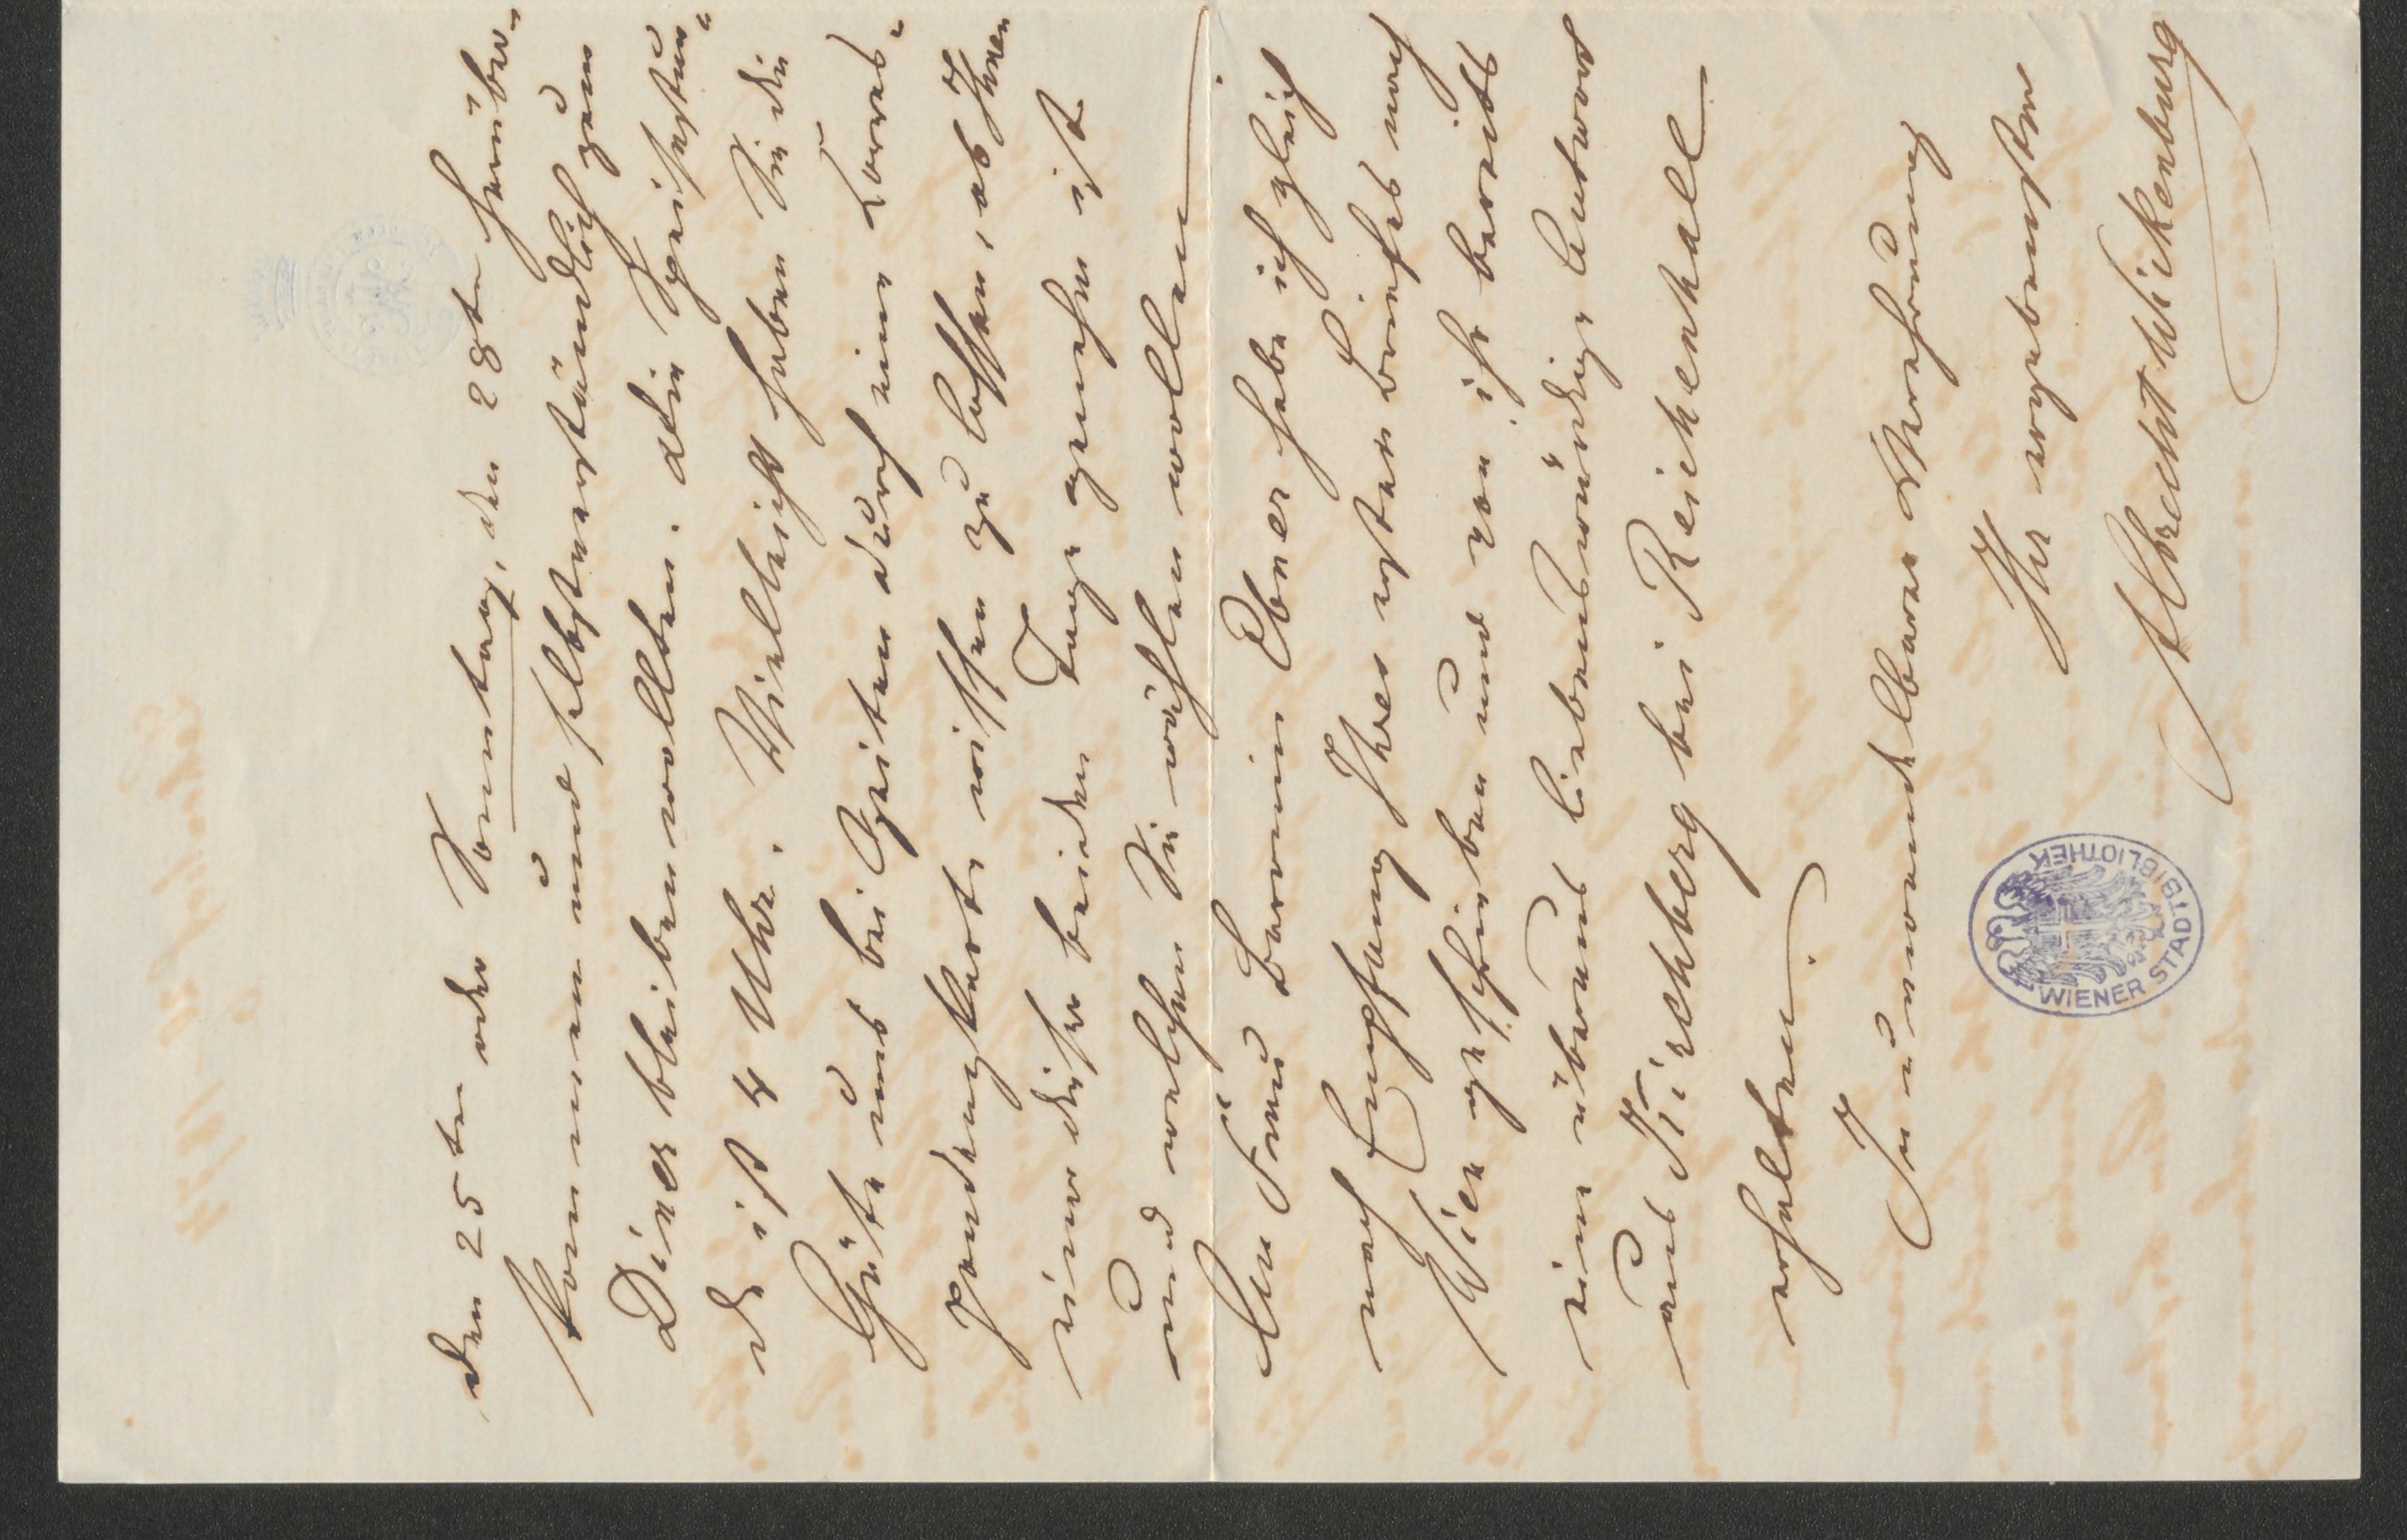 den 25ten oder Sonntag, den 28ten herüber-
kommen und selbstverständlich zum
Diner bleiben wollten. Die Speisestun-
de ist 4 Uhr. Vielleicht haben Sie die
Güte uns bei Zeiten durch eine Corres-
pondenzkarte wissen zu lassen, ob Ihnen
einer dieser beiden Tage genehm ist
und welchen Sie wählen wollen.
An Frau Baronin Ebner habe ich gleich
nach Empfang Ihres ersten Briefes nach
Wien geschrieben und von ihr bereits
eine überaus liebenswürdige Antwort
aus Kirchberg bei Reichenhall
erhalten.
In unwandelbarer Verehrung
Ihr ergebenster
Albrecht Wickenburg
WIENER STADTBIBLIOTHEK